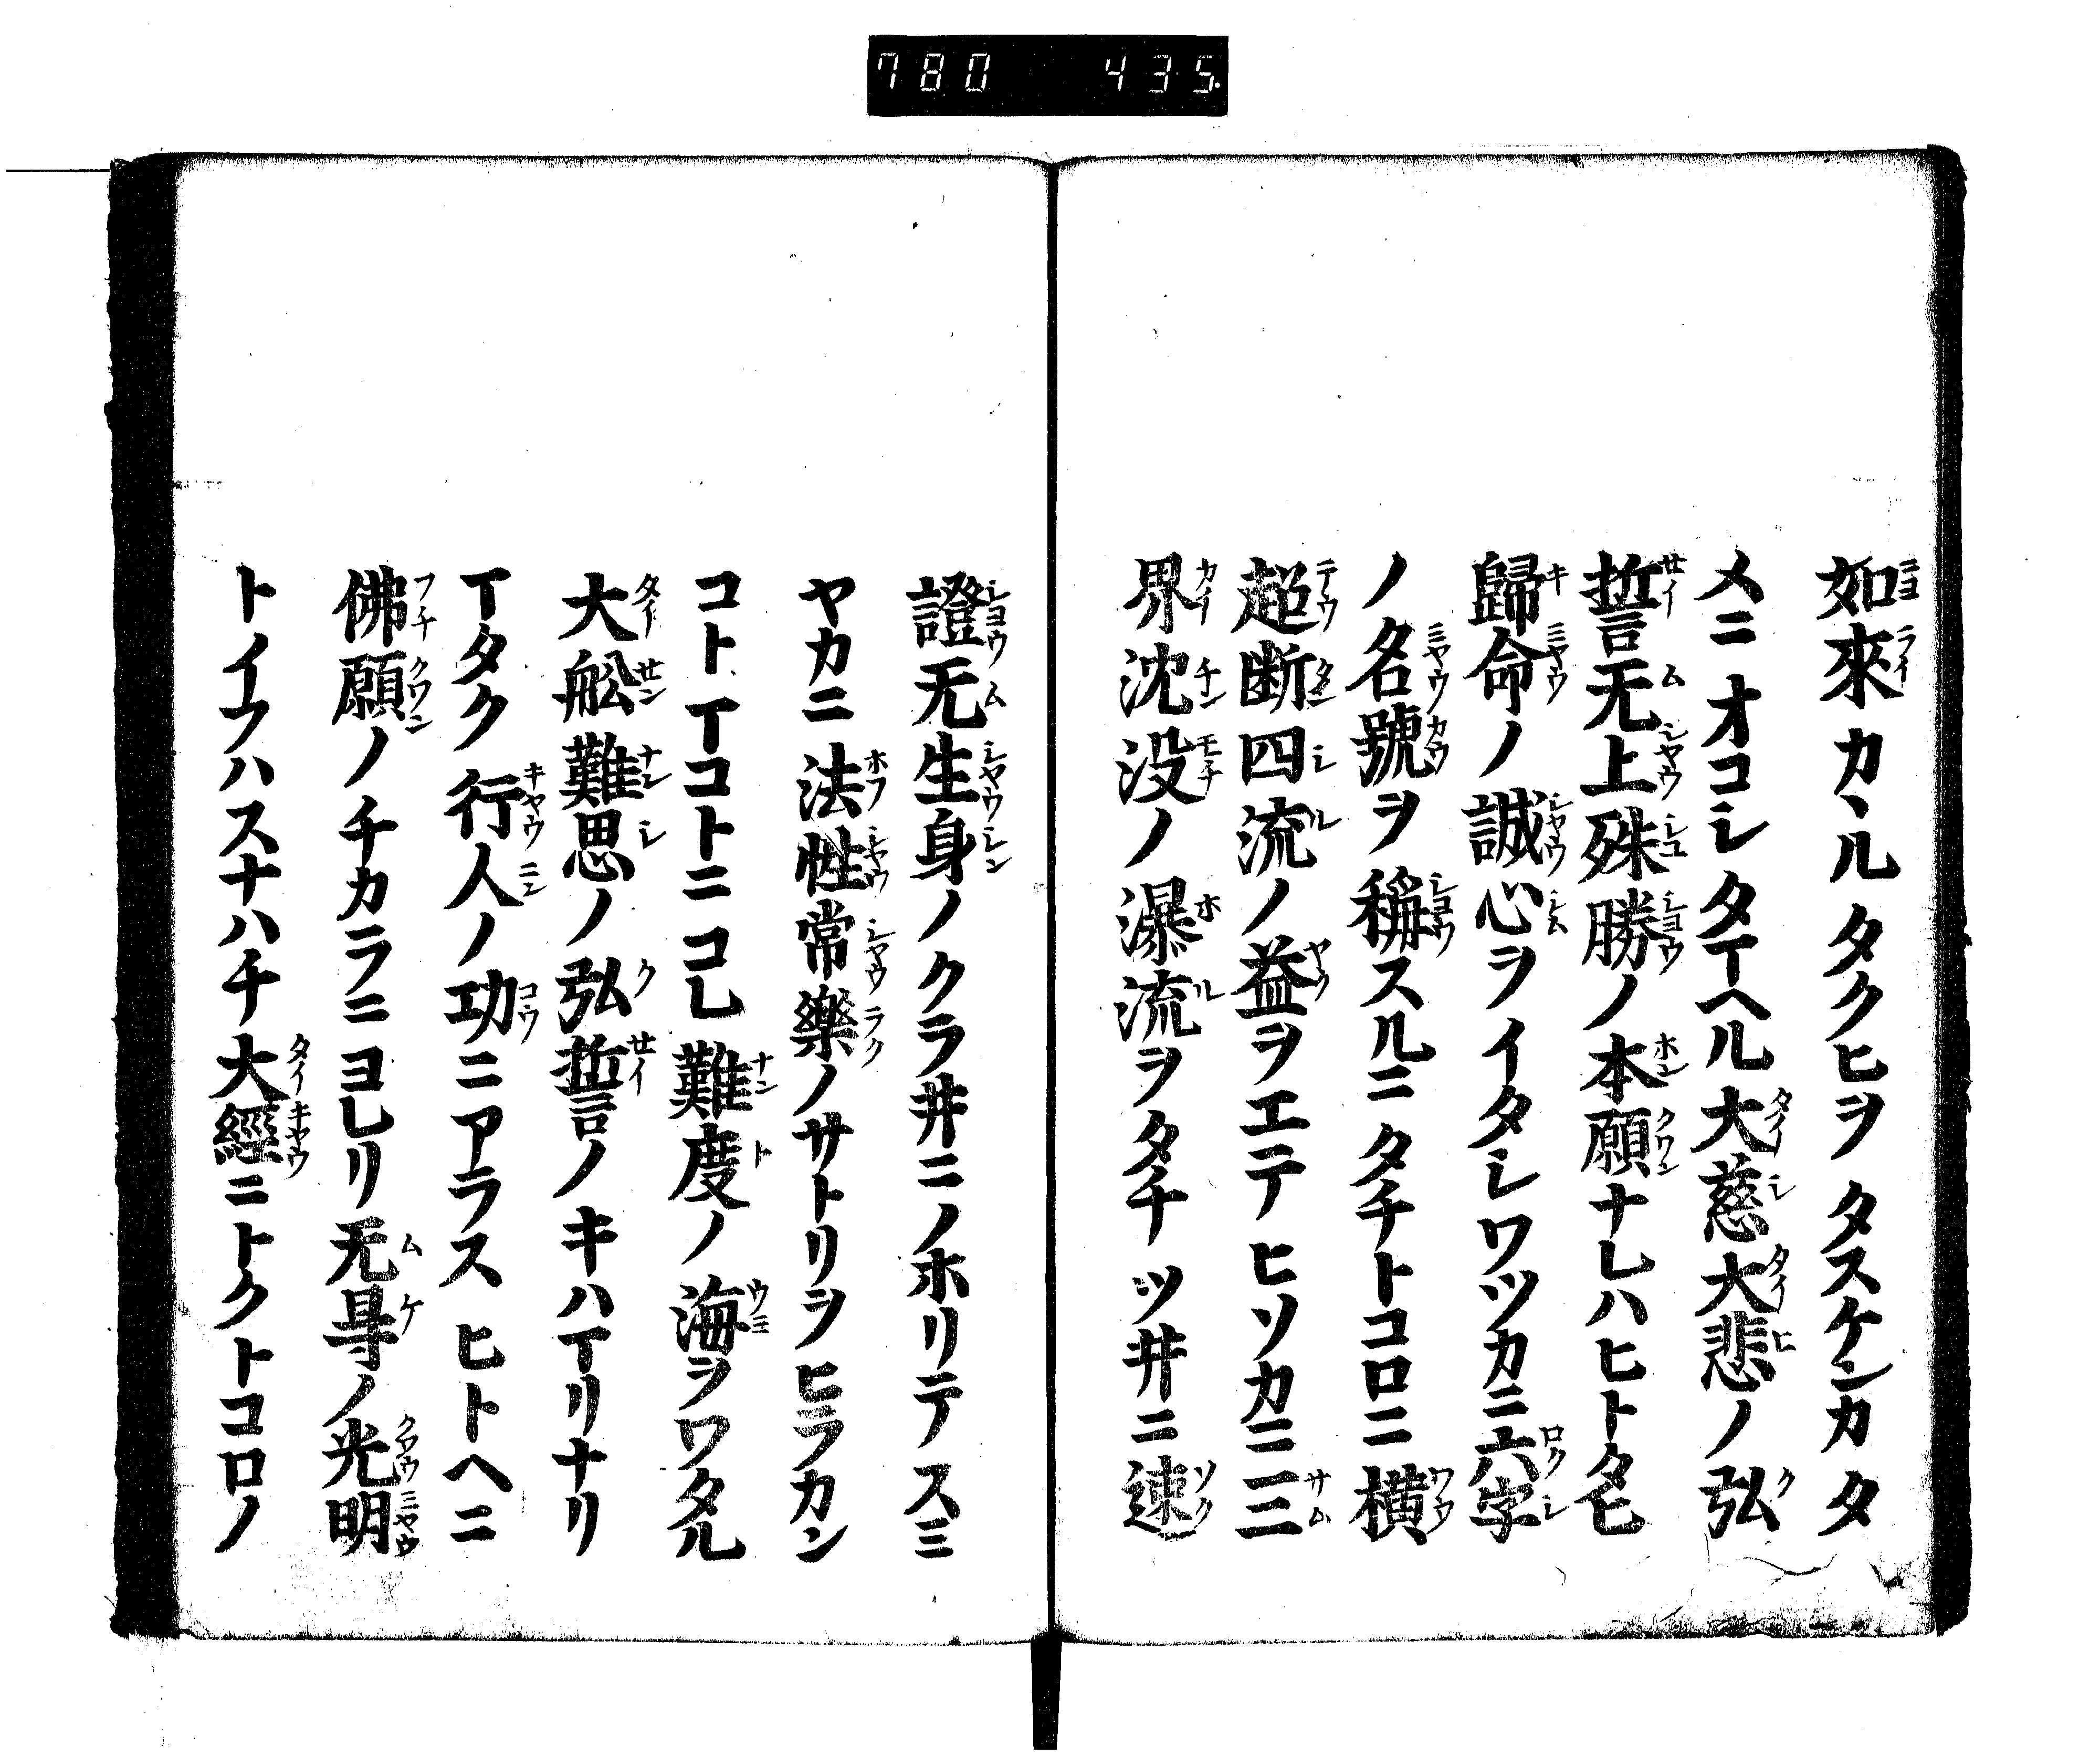 780 435.
如來カヽルタクヒヲタスケンカタ
メニオコシタマヘル大慈大悲ノ弘
誓无上殊勝ノ本願ナレハヒトタヒ
歸命ノ誠心ヲイタシワツカニ六字
ノ名號ヲ稱スルニタチトコロニ横
超断四流ノ益ヲエテヒソカニ三
界沈没ノ瀑流ヲタチツ井ニ速
證无生身ノクラ井ニノホリテスミ
ヤカニ法性常樂ノサトリヲヒラカン
コトマコトニコレ難度ノ海ヲワタル
大舩難思ノ弘誓ノキハマリナリ
マタク行人ノ功ニアラスヒトヘニ
佛願ノチカラニヨレリ无㝵ノ光明
トイフハスナハチ大經ニトクトコロノ